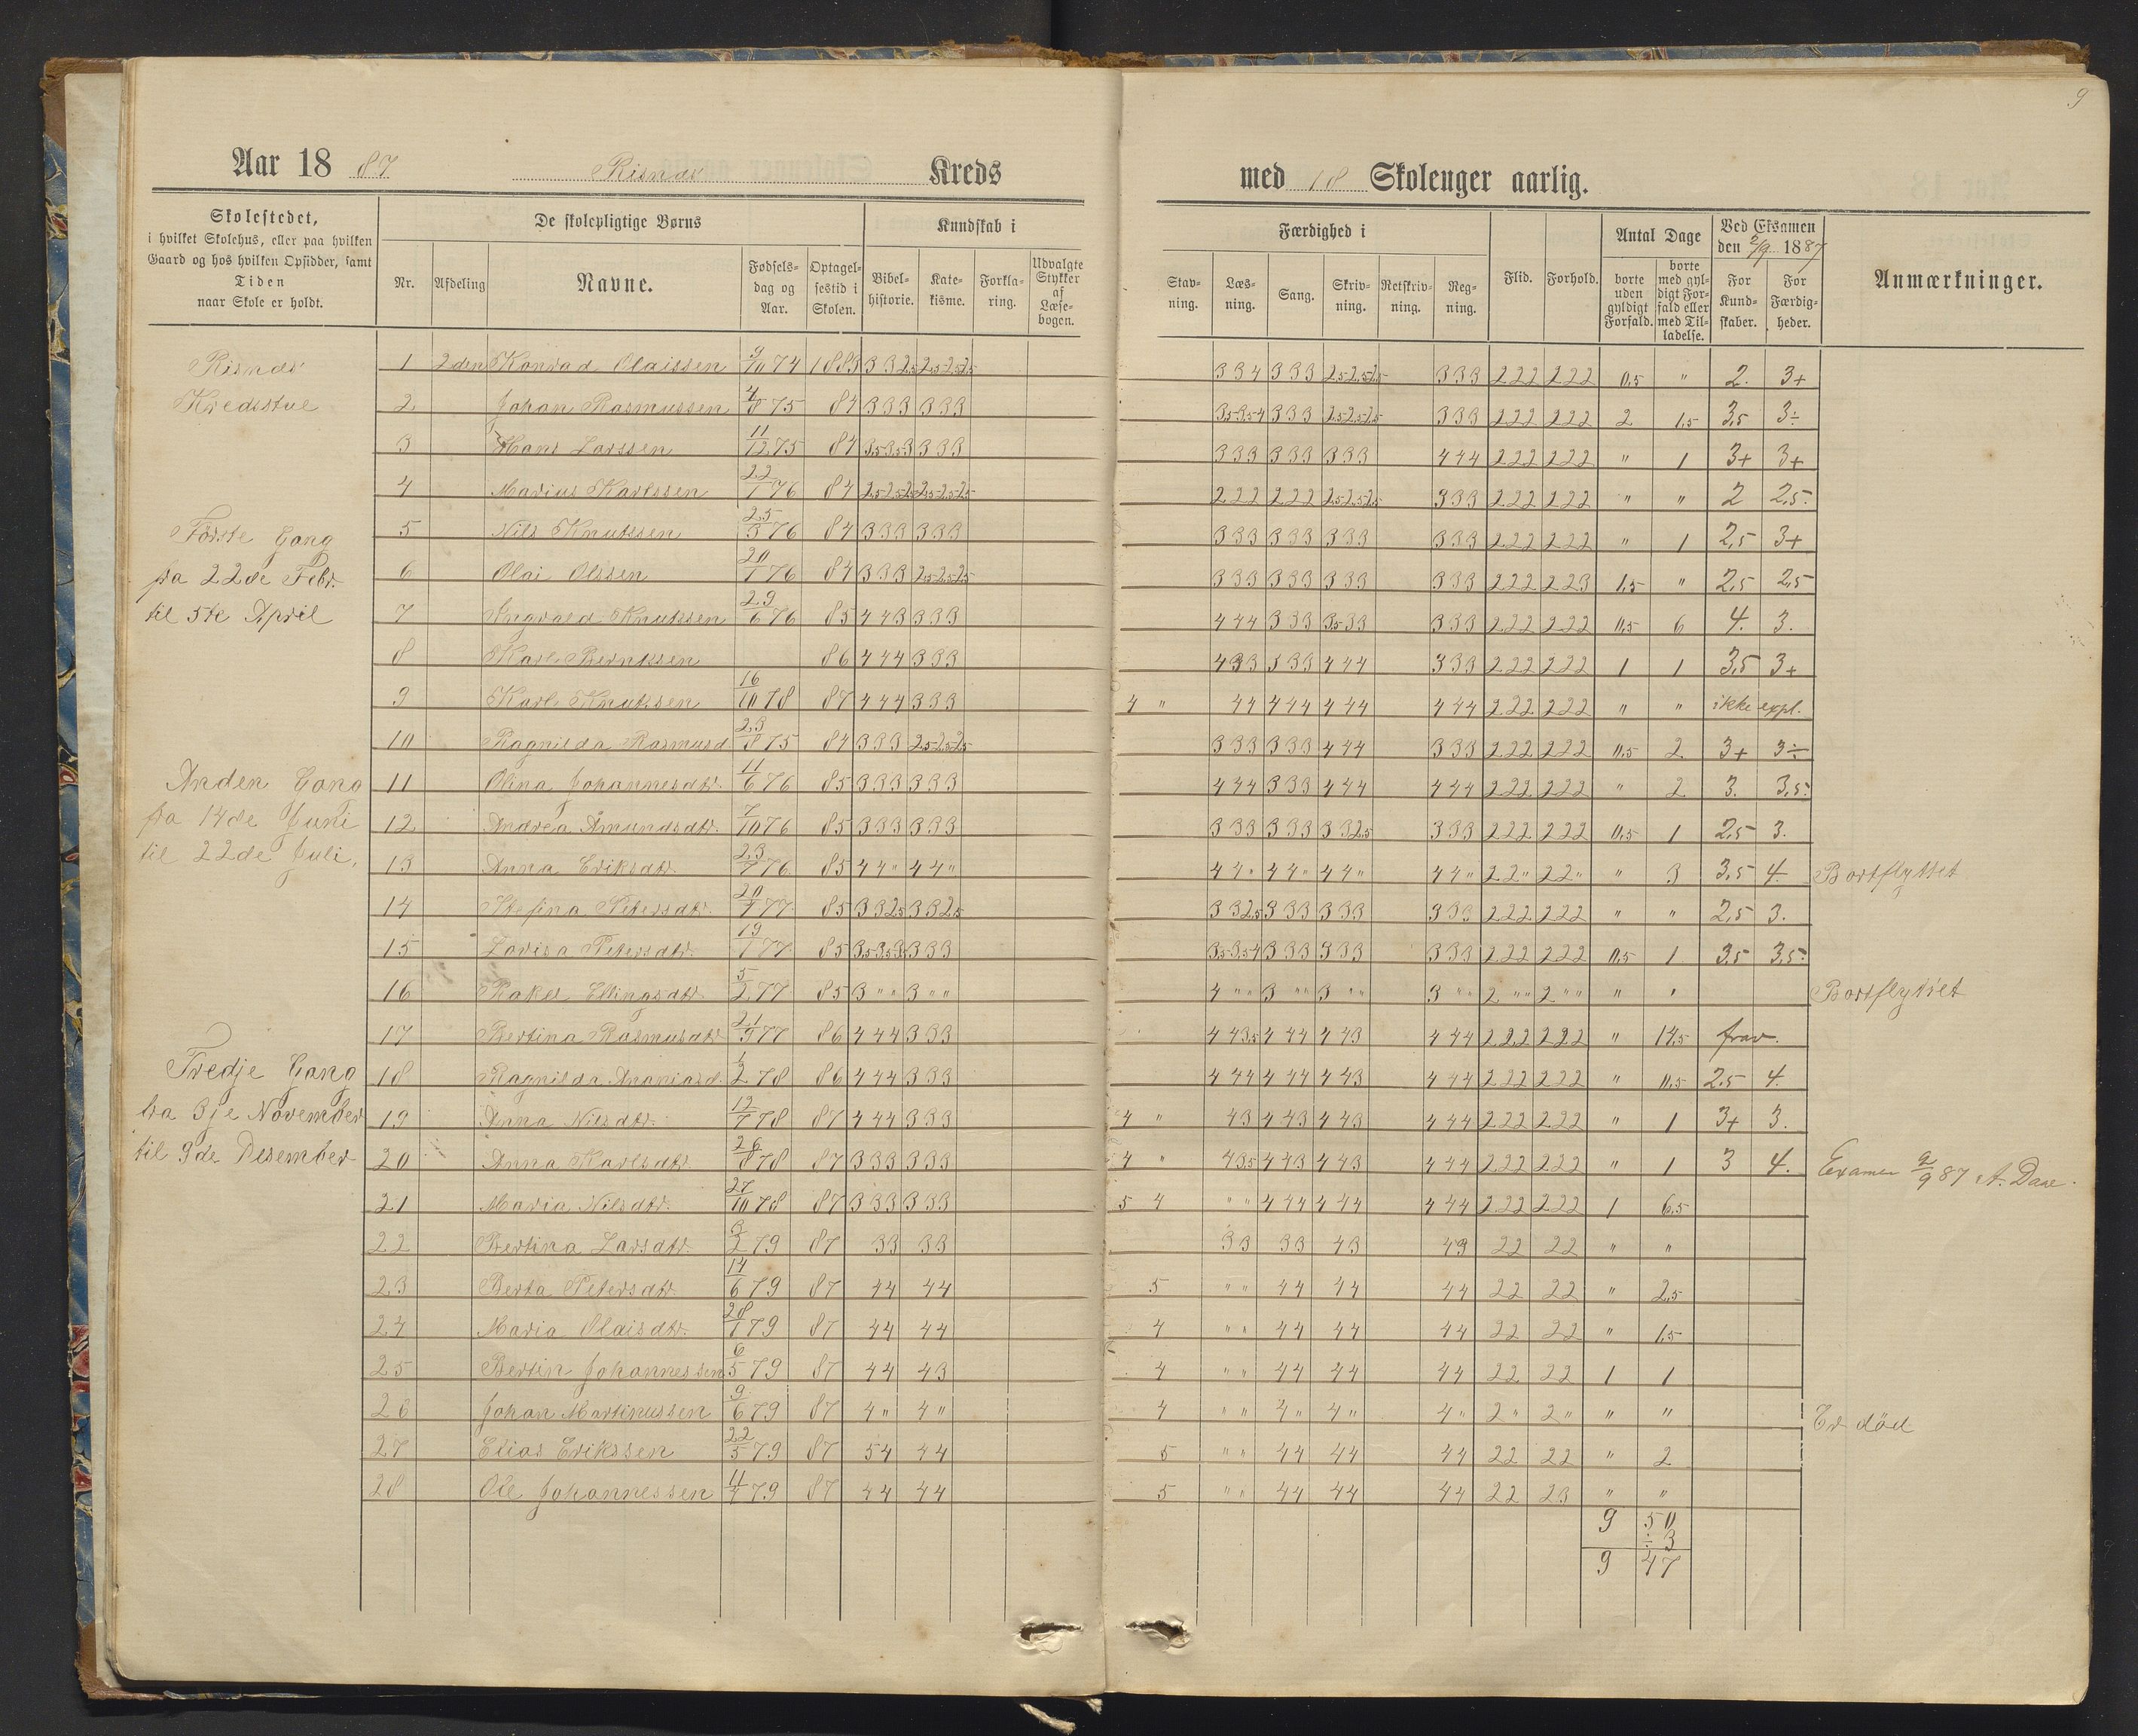 9
Aar 18 87 Risnæs Kreds med 18 Skolenger aarlig.
Skolestedet,
i hvilket Skolehus, eller paa hvilken
Gaard og hos hvilken Opsidder, samt
Tiden
naar Skole er holdt.
De skolepligtige Børns
Nr. Afdeling Navne. Fødsels-dag og Aar. Optagel-sestid i Skolen.
Kundskab i
Bibel-historie. Kate-kisme. Forkla-ring. Udvalgte Stykker af Læse-bogen.
Færdighed i
Stav-ning. Læs-ning. Sang. Skriv-ning. Retskriv-ning. Reg-ning.
Flid. Forhold.
Antal Dage
borte uden gyldigt Forfald. borte med gyl-digt For-fald eller med Til-ladelse.
Ved Eksamen
den 2/9 1887
For Kund-skaber. For Færdig-heder.
Anmærkninger.
Risnæs
Kredsstue
Første Gang
fra 22de Febr.
til 5te April
Anden Gang
fra 14de Juni
til 22de Juli,
Tredje Gang
fra 3je November
til 9de Desember
1 2den Konrad Olaissen 9/10 74 1883 3 3 2,5 2,5 2,5 2,5 3 3 4 3 3 3 2,5 2,5 2,5 3 3 3 2 2 2 2 2 2 0,5 " 2. 3+
2 Johan Rasmussen 4/8 75 84 3 3 3 3 3 3 3,5 3,5 4 3 3 3 2,5 2,5 2,5 3 3 3 2 2 2 2 2 2 2 1,5 3,5 3÷
3 Hans Larssen 11/12 75 84 3,5 3,5 3 3 3 3 3 3 3 3 3 3 3 3 3 4 4 4 2 2 2 2 2 2 " 1 3+ 3+
4 Marius Karlssen 22/1 76 84 2,5 2,5 2,5 2,5 2,5 2,5 2 2 2 2 2 2 2,5 2,5 2,5 3 3 3 2 2 2 2 2 2 " " 2 2,5
5 Nils Knutssen 25/3 76 84 3 3 3 3 3 3 3 3 3 3 3 3 3 3 3 3 3 3 2 2 2 2 2 2 " 1 2,5 3+
6 Olai Olssen 20/1 76 84 3 3 3 2,5 2,5 2,5 3 3 3 3 3 3 3 3 3 3 3 3 2 2 2 2 2 3 1,5 " 2,5 2,5
7 Ingvald Knutssen 29/6 76 85 4 4 3 3 3 3 4 4 4 3 3 3 3,5 3 3 3 3 3 2 2 2 2 2 2 0,5 6 4. 3.
8 Karl Berntssen 86 4 4 4 3 3 3 4 3 3 3 3 3 4 4 4 3 3 3 2 2 2 2 2 2 1 1 3,5 3+
9 Karl Knutssen 16/10 78 87 4 4 4 3 3 3 4 " 4 4 4 4 4 4 4 4 4 4 4 2 2 2 2 2 2 " " ikke expl.
10 Ragnilda Rasmusd 23/8 75 84 3 3 3 2,5 2,5 2,5 3 3 3 3 3 3 4 4 4 3 3 3 2 2 2 2 2 2 0,5 2 3+ 3÷
11 Olina Johannesdtr. 11/6 76 85 3 3 3 3 3 3 4 4 4 3 3 3 4 4 4 4 4 4 2 2 2 2 2 2 " 2 3. 3,5
12 Andrea Amundsdtr. 7/10 76 85 3 3 3 3 3 3 3 3 3 3 3 3 3 3 2,5 3 3 3 2 2 2 2 2 2 0,5 1 2,5 3.
13 Anna Eriksdtr. 23/7 76 85 4 4 " 4 4 " 4 4 " 4 4 " 4 4 " 4 4 " 2 2 " 2 2 " " 3 3,5 4. Bortflyttet
14 Stefina Petersdtr. 20/1 77 85 3 3 2,5 3 3 2,5 3 3 2,5 3 3 3 3 3 3 3 3 3 2 2 2 2 2 2 " " 2,5 3.
15 Lovisa Petersdtr. 19/1 77 85 3,5 3,5 3,5 3 3 3 3,5 3,5 4 3 3 3 3 3 3 3 3 3 2 2 2 2 2 2 0,5 1 3,5 3,5
16 Rakel Ellingsdtr. 5/2 77 85 3 " " 3 " " 4 " " 3 " " 3 " " 3 " " 2 " " 2 " " " " Bortflyttet
17 Bertina Rasmusdtr 21/9 77 86 4 4 4 3 3 3 4 4 3,5 4 4 4 4 4 3 4 4 4 2 2 2 2 2 2 " 14,5 frav.
18 Ragnilda Ananiasd. 1/2 78 86 4 4 4 3 3 3 4 4 4 4 4 4 4 4 3 4 4 4 2 2 2 2 2 2 " 0,5 2,5 4.
19 Anna Nilsdtr. 12/7 78 87 4 4 4 3 3 3 4 " 4 3 4 4 3 4 4 3 4 4 4 2 2 2 2 2 2 " 1 3+ 3.
20 Anna Karlsdtr. 26/8 78 87 3 3 3 3 3 3 4 " 4 3,5 4 4 3 4 4 3 4 4 4 2 2 2 2 2 2 " 1 3 4. Examen 2/9 87 A. Daae.
21 Maria Nilsdtr. 27/10 78 87 3 3 3 3 3 3 5 4 " " 4 4 4 4 4 4 4 4 4 2 2 2 2 2 2 1 6,5
22 Bertina Larsdtr. 3/2 79 87 3 3 3 3 3 3 3 3 4 3 4 3 2 2 2 2 " "
23 Berta Petersdtr. 14/6 79 87 4 4 4 4 5 " " 4 4 4 4 4 4 2 2 2 2 " 2,5
24 Maria Olaisdtr. 28/1 79 87 4 4 4 4 4 " " 4 4 4 4 4 4 2 2 2 2 " 1,5
25 Bertin Johannessen 6/5 79 87 4 4 4 3 4 " " 4 4 4 4 4 4 2 2 2 2 1 1
26 Johan Martinussen 9/6 79 87 4 " 4 " 4 " " 4 " 4 " 4 " 2 " 2 " " " Er död
27 Elias Erikssen 22/5 79 87 5 4 4 4 5 " " 4 4 4 4 4 4 2 2 2 2 " 2
28 Ole Johannessen 11/4 79 87 4 4 4 4 5 " " 4 4 4 4 4 4 2 2 2 3 " "
9 50
÷ 3
9 47